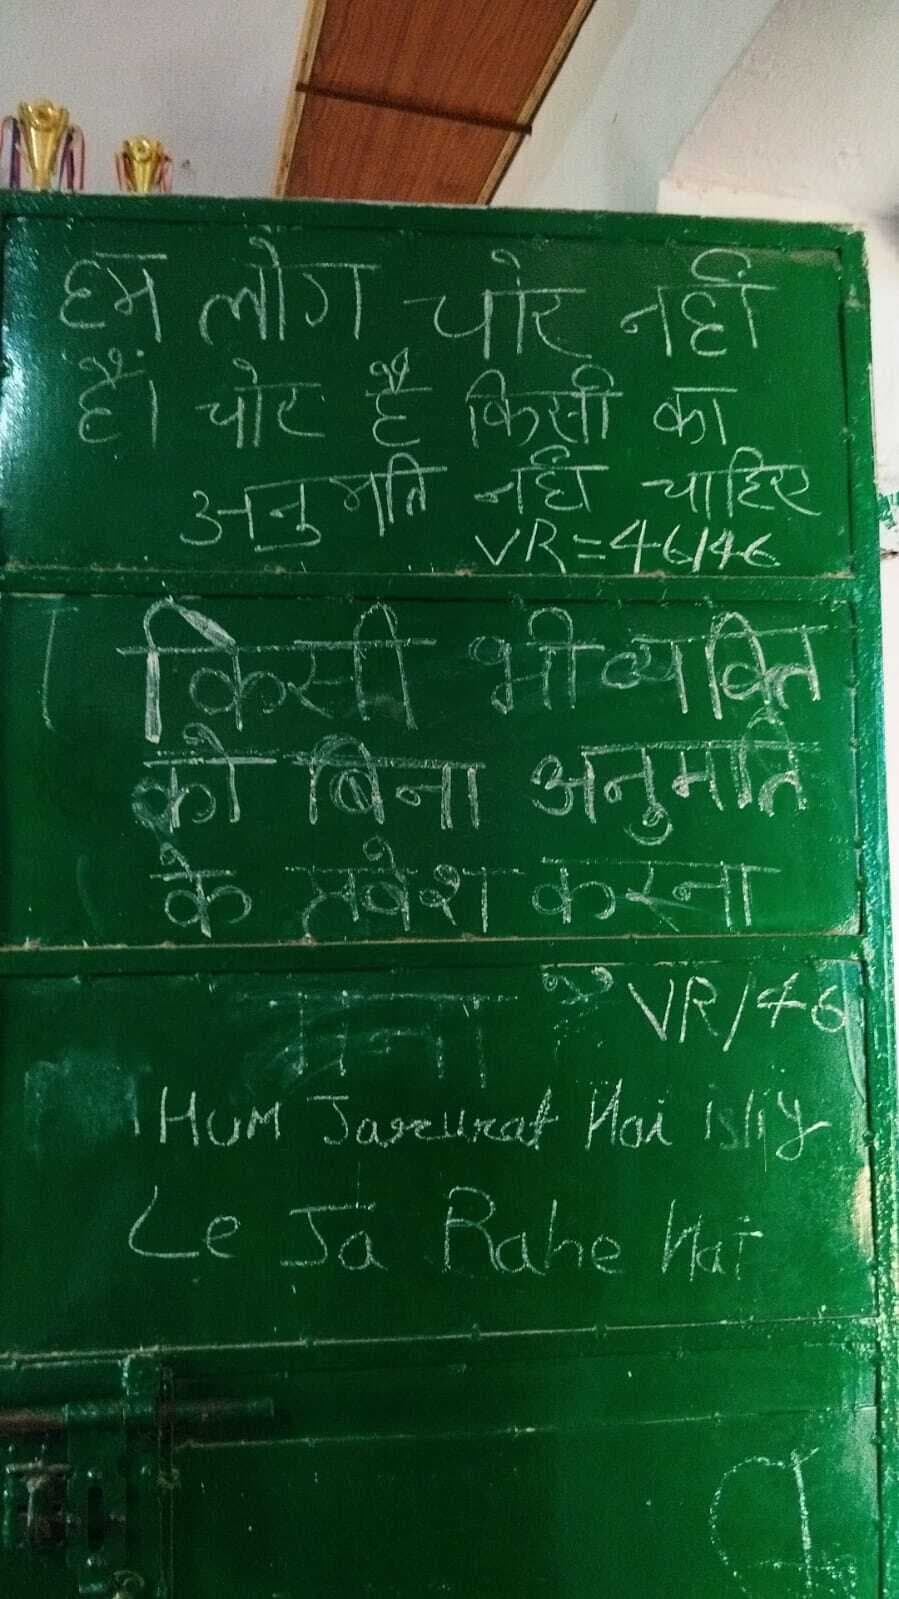 हम लोग चोर नहीं
हैं। चोर है किसी का
अनुमति नहीं चाहिए
VR=46146
किसी भी व्यक्ति
को बिना अनुमति
के प्रवेश करना
मना है VR/46
HUM Jarurat Hai isliy
Le Ja Rahe Hai